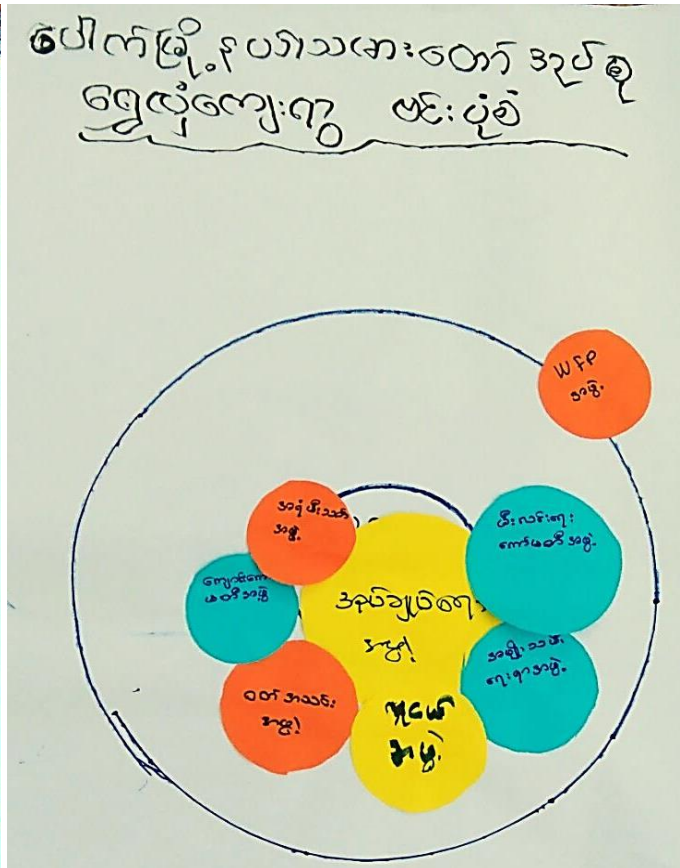 ပေါက်မြို့နယ်၊သမားတော် အုပ်စု
ရွှေလှံကျေးရွာ ဗင်းပုံစံ
WFP
အဖွဲ့
အရံမီးသတ်
အဖွဲ့
မီးလင်းရေး
ကော်မတီအဖွဲ့
ကျောင်းကော်
မတီအဖွဲ့
အုပ်ချုပ်ရေး
အဖွဲ့
အမျိုးသမီး
ရေးရာအဖွဲ့
ဝတ်အသင်း
အဖွဲ့
လူငယ်
အဖွဲ့